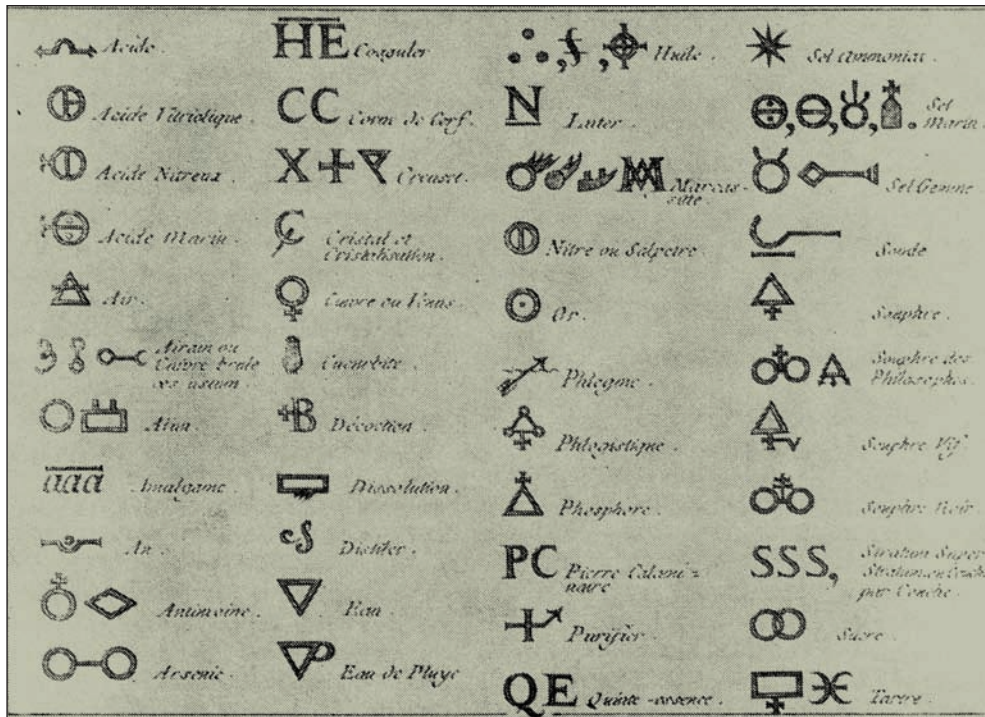 Acide.
Acide Vitriolique.
Acide Nitreux.
Acide Marin.
Air.
Airain ou
Cuivre brule
œs ustum.
Alun.
aaa Amalgame.
An.
Antimoine.
Arsenic.
HE Coaguler
CC Corne de Cerf.
X Creuset.
Cristal et
Cristalisation.
Cuivre ou Venus.
Cucurbite.
B Décoction.
Dissolution.
Distiler.
Eau.
Eau de Pluye
Huile.
N Luter.
Marcas-
site
Nitre ou Salpetre.
Or.
Phlegme.
Phlogistique.
Phosphore.
PC Pierre Calami-
naire
Purifier.
QE Quinte-essence.
Sel Ammoniac.
Sel
Marin.
Sel Gemme
Soude
Souphre.
Souphre des
Philosophes.
Souphre Vif.
Souphre Noir.
SSS, Stratum Super
Stratum, ou Couche
par Couche.
Sucre.
Tartre.